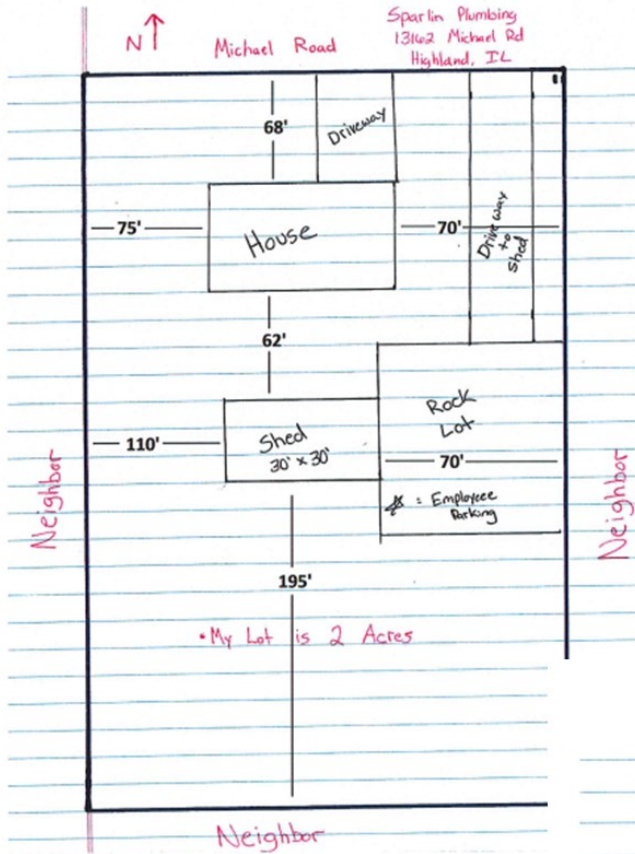 N
Michael Road
Sparlin Plumbing
13162 Michael Rd
Highland, IL
68'
Driveway
75'
House
70'
Driveway
to
Shed
62'
110'
Shed
30' x 30'
Rock
Lot
70'
= Employeee
Parking
Neighbor
Neighbor
195'
• My Lot is 2 Acres
Neighbor